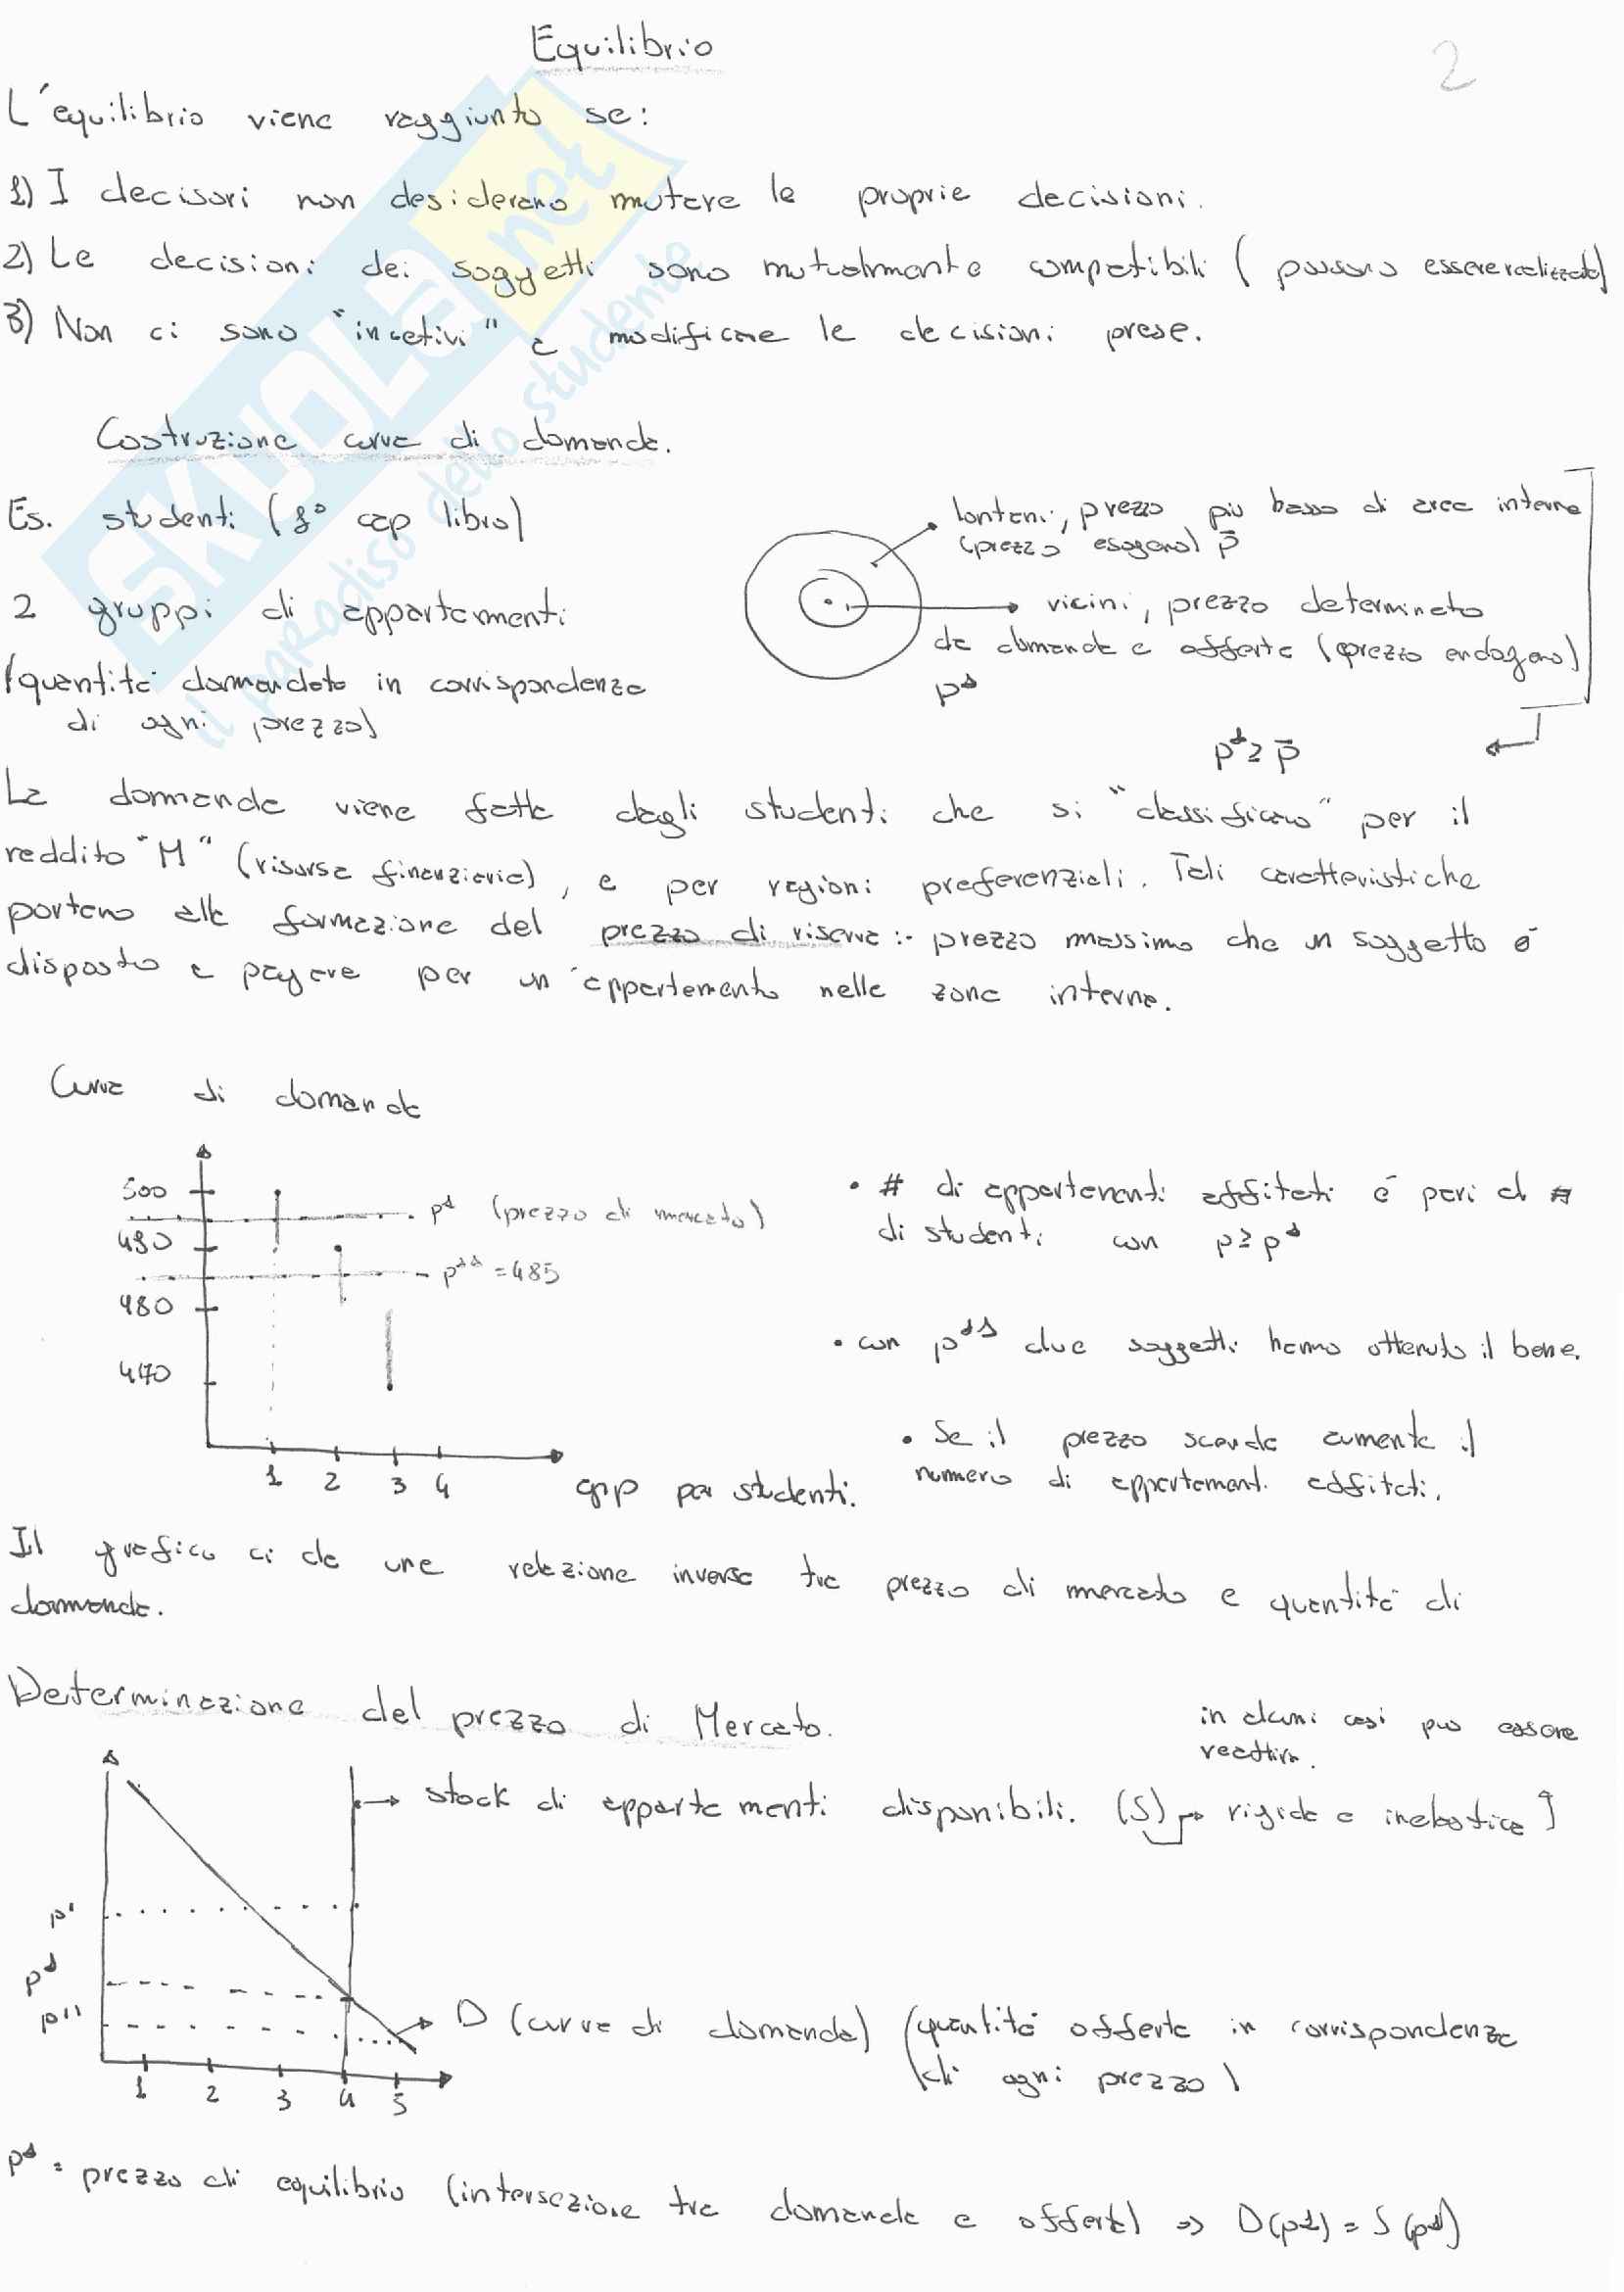 Equilibrio
2
L'equilibrio viene raggiunto se:
1) I decisori non desiderano mutare le proprie decisioni.
2) Le decisioni dei soggetti sono mutualmente compatibili ( possono essere realizzate)
3) Non ci sono "incetivi" a modificare le decisioni prese.
Costruzione curva di domanda.
Es. studenti (1° cap libro)
lontani, prezzo più basso di area interna
(prezzo esogeno) p̄
2 gruppi di appartamenti
vicini, prezzo determinato
da domanda e offerta (prezzo endogeno)
p*
(quantità dommandata in corrispondenza
di ogni prezzo)
p* ≥ p̄
La dommanda viene fatta dagli studenti che si "classificano" per il
reddito "M" (risorsa finanziaria), e per ragioni preferenziali. Tali caratteristiche
portano alla formazione del prezzo di riserva :- prezzo massimo che un soggetto è
disposto a pagare per un appartamento nella zona interna.
Curva di domanda
500
490
480
470
p* (prezzo di mercato)
p** = 485
1 2 3 4
app per studenti.
• # di appartamenti affitati è pari al #
di studenti con p ≥ p*
• con p** due soggetti hanno ottenuto il bene.
• Se il prezzo scende aumenta il
numero di appartamenti affitati.
Il grafico ci da una relazione inversa tra prezzo di mercato e quantità di
dommanda.
Determinazione del prezzo di Mercato.
in alcuni casi può essere
reattiva.
→ stock di appartamenti disponibili. (S) → rigida e inelastica
p'
p*
p''
→ D (curva di domanda) (quantità offerta in corrispondenza
di ogni prezzo)
1 2 3 4 5
p* = prezzo di equilibrio (intersezione tra domanda e offerta) ⇒ D(p*) = S(p*)
SKUOLA.net
il paradiso dello studente